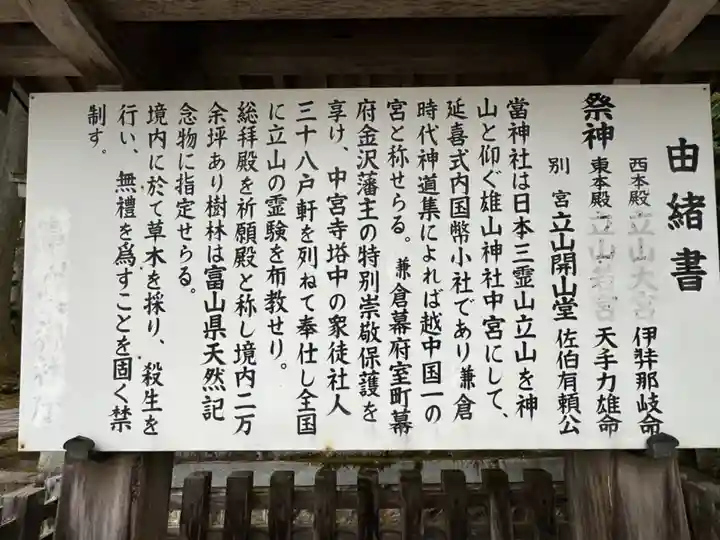 由緒書
祭神
西本殿 立山大宮 伊弉那岐命
東本殿 立山若宮 天手力雄命
別宮 立山開山堂 佐伯有頼公
當神社は日本三霊山立山を神
山と仰ぐ雄山神社中宮にして、
延喜式内国幣小社であり兼倉
時代神道集によれば越中国一の
宮と称せらる。兼倉幕府室町幕
府金沢藩主の特別崇敬保護を
享け、中宮寺塔中の衆徒社人
三十八戸軒を列ねて奉仕し全国
に立山の霊験を布教せり。
総拝殿を祈願殿と称し境内二万
余坪あり樹林は富山県天然記
念物に指定せらる。
境内に於て草木を採り、殺生を
行い、無禮を為すことを固く禁
制す。